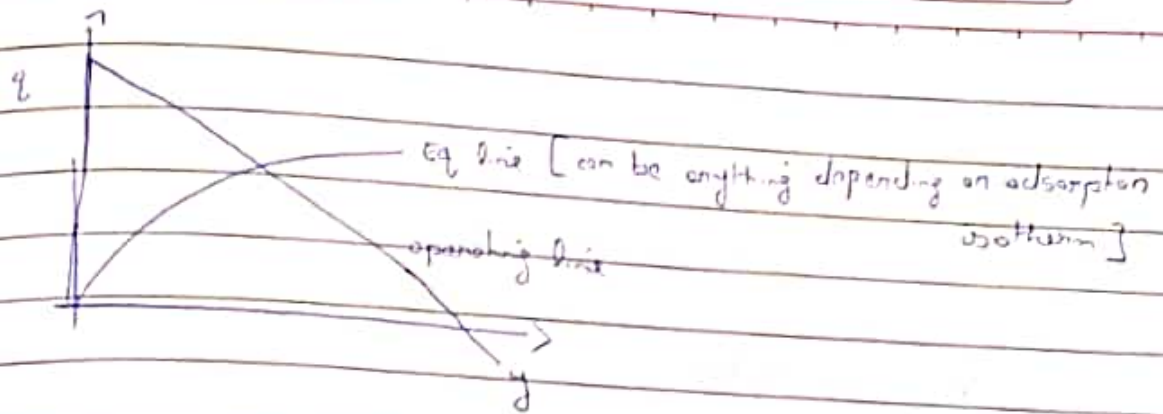 q
Eq line [can be anything depending on adsorption
isotherm]
operating line
y